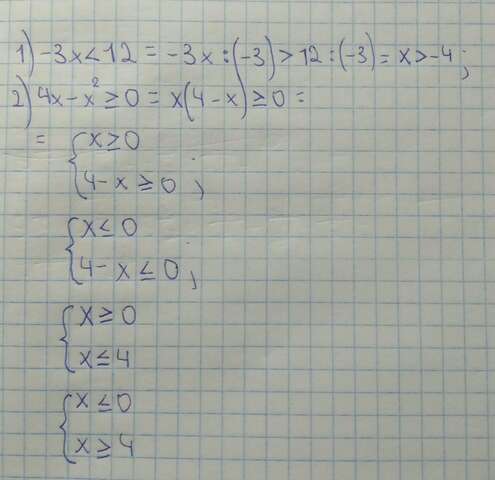 1) -3x < 12 = -3x : (-3) > 12 : (-3) = x > -4 ;
2) 4x - x² ≥ 0 = x(4 - x) ≥ 0 =
= { x ≥ 0
4 - x ≥ 0 ;
{ x ≤ 0
4 - x ≤ 0 ;
{ x ≥ 0
x ≤ 4
{ x ≤ 0
x ≥ 4